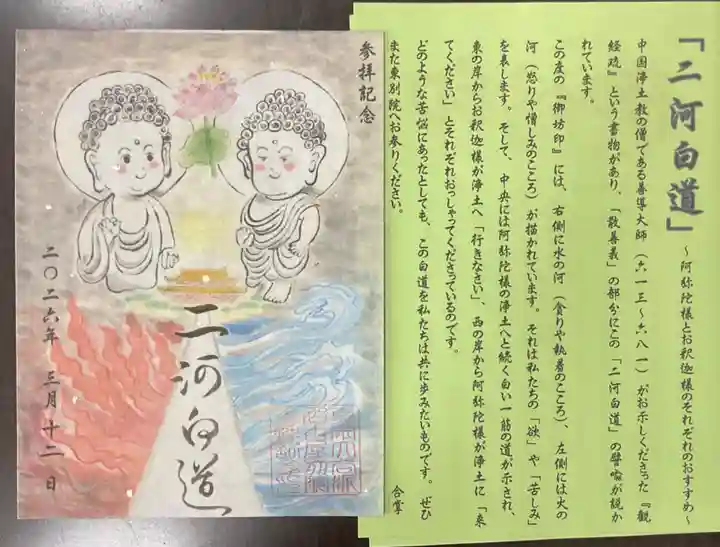 「二河白道」 ~阿弥陀様とお釈迦様のそれぞれのおすすめ~
中国浄土教の僧である善導大師(六一三~六八一)がお示しくださった『観
経疏』という書物があり、「散善義」の部分にこの「二河白道」の譬喩が説か
れています。
この度の『御坊印』には、右側に水の河(貪りや執着のこころ)、左側には火の
河(怒りや憎しみのこころ)が描かれています。それは私たちの「欲」や「苦しみ」
を表します。そして、中央には阿弥陀様の浄土へと続く白い一筋の道が示され、
東の岸からお釈迦様が浄土へ「行きなさい」、西の岸から阿弥陀様が浄土に「来
てください」とそれぞれおっしゃってくださっているのです。
どのような苦悩にあったとしても、この白道を私たちは共に歩みたいものです。ぜひ
また東別院へお参りください。
合掌
参拝記念
二河白道
二〇二六年 三月十二日